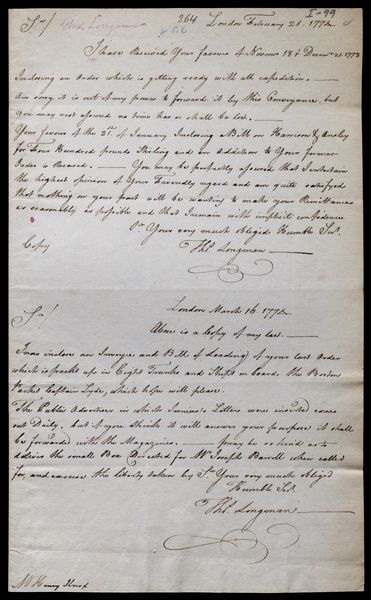 264 London February 21. 1774
I-99
Sir/ Thos. Longman
I have Received Your favours of Novemr 18 & Decemr 21. 1773
Inclosing an Order which is getting ready with all expedition.
Am sorry it is out of my power to forward it by this Conveyance. but
You may rest assured no time has or shall be lost.
Your favour of the 2d of January Inclosing Bill on Harrison & Ansley
for Four Hundred pounds Sterling and an Addition to Your former
Order is Received. You may be perfectly assured that I entertain
the highest opinion of Your Friendly regard and am quite satisfied
that nothing on your part will be wanting to make your Remittances
as reasonably as possible and that I remain with implicit confidence
Sr. Your very much Obliged Humble Sert.
Copy
Thos. Longman
London March 16. 1774
Sr./
Above is a Copy of my last.
I now inclose an Invoyce and Bill of Loading of your last Order
which is packt up in Eight Trunks and Shipt on board the Boston
Packet Captain Lyde, which hope will please.
The Public Advertiser in which Junius's Letters were inserted comes
out Daily. but if you think it will answer your purpose it shall
be forwarded with the Magazines. pray be so kind as to
deliver the small Box Directed for Mr Joseph Barrell when called
for, and excuse the liberty taken by Sr. Your very much Obliged
Humble Sert.
Thos. Longman
Mr Henry Knox